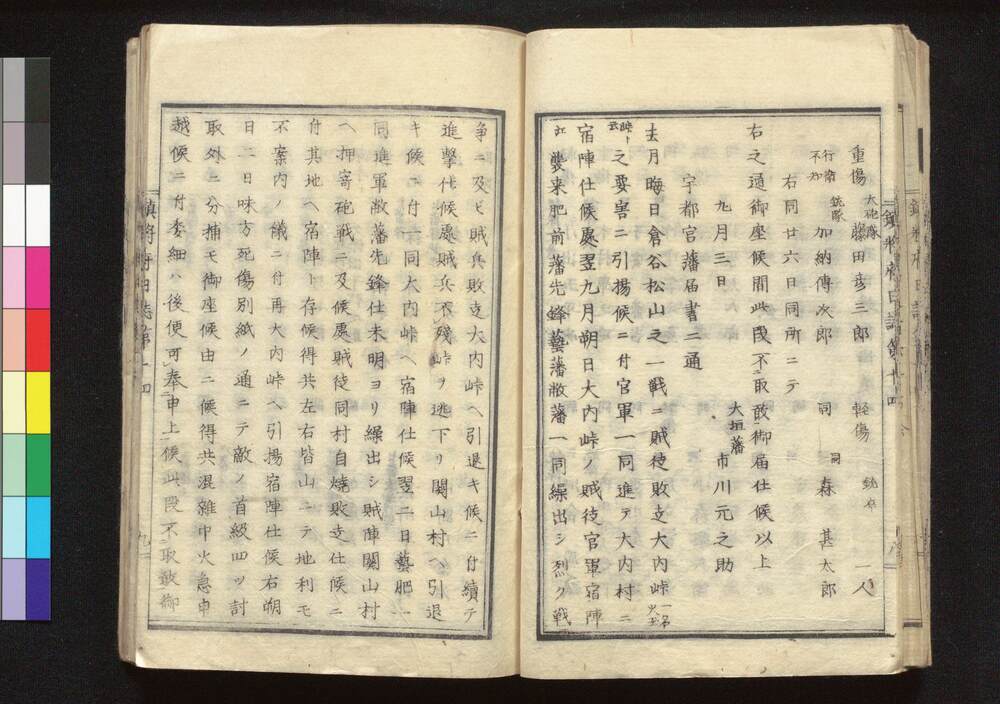 重傷 大砲隊 藤田彦三郎 軽傷 銃卒 一人
行衛不知 銃隊 加納傳次郎 同 同 森甚太郎
右同廿六日同所ニテ
右之通御座候間此段不取敢御届仕候以上
九月三日 大垣藩 市川元之助
宇都宮藩届書二通
去月晦日倉谷松山之一戦ニ賊徒敗走大内峠一名火玉
峠ト云之要害ニ引揚候ニ付官軍一同進テ大内村ニ
宿陣仕候處翌九月朔日大内峠ノ賊徒官軍宿陣
江襲来肥前藩先鋒藝藩敝藩一同繰出シ烈ク戦
争ニ及ヒ賊兵敗走大内峠ヘ引退キ候ニ付續テ
進撃仕候處賊兵不残峠ヲ逃下リ関山村ヘ引退
キ候ニ付一同大内峠ヘ宿陣仕候翌二日藝肥一
同進軍敝藩先鋒仕未明ヨリ繰出シ賊陣関山村
ヘ押寄砲戦ニ及候處賊徒同村自焼敗走仕候ニ
付其地ヘ宿陣ト存候得共左右皆山ニテ地利モ
不案内ノ儀ニ付再大内峠ヘ引揚宿陣仕候右朔
日二日味方死傷別紙ノ通ニテ敵ノ首級四ツ討
取外ニ分捕モ御座候由ニ候得共混雑中火急申
越候ニ付委細ハ後便可奉申上候此段不取敢御
鎮将府日誌第十四
九